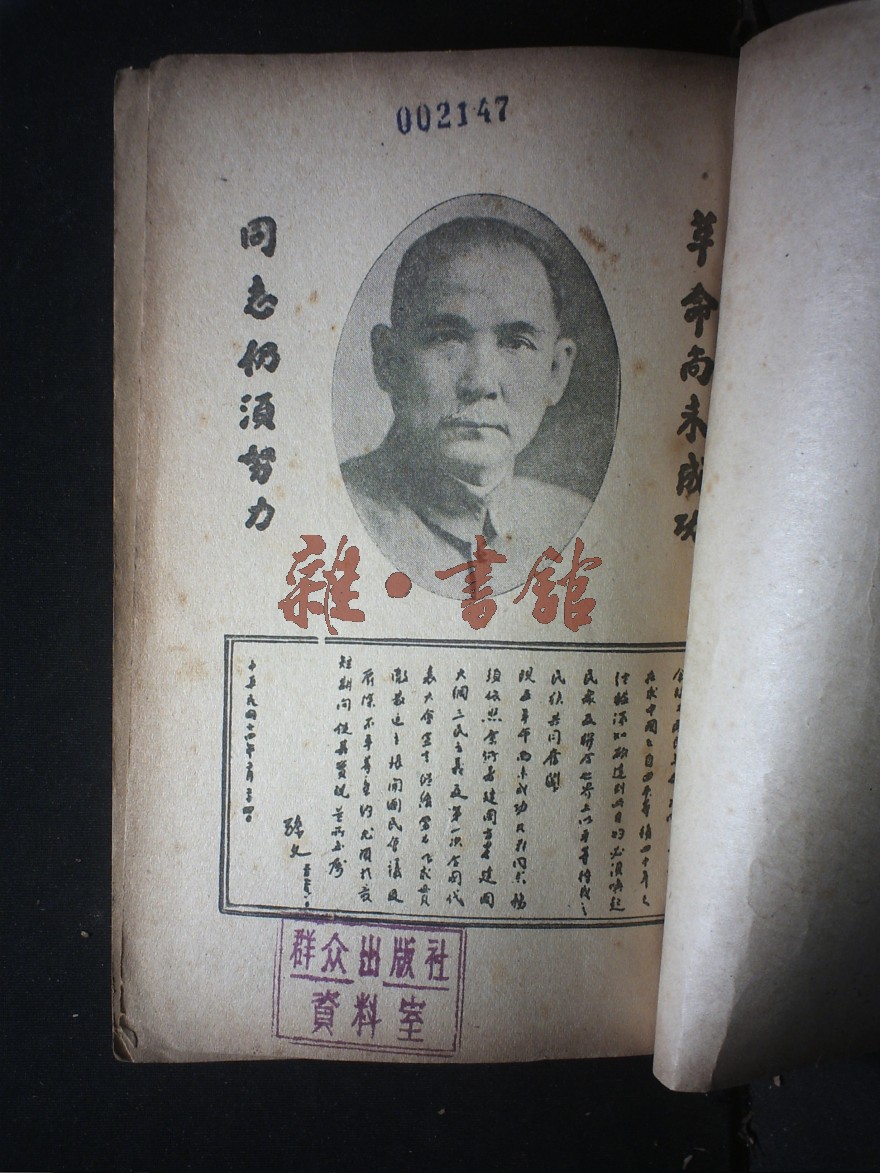 002147
革命尚未成功
同志仍須努力
雜·書舘
在求中國之自由平等積四十年之
經驗深知欲達到此目的必須喚起
民眾及聯合世界上以平等待我之
民族共同奮鬥
現在革命尚未成功凡我同志務
須依照余所著建國方畧建國
大綱三民主義及第一次全國代
表大會宣言繼續努力以求貫
徹最近主張開國民會議及
廢除不平等條約尤須於最
短期間促其實現是所至囑
孫文
中華民國十四年二月二十四日
群众出版社
資料室